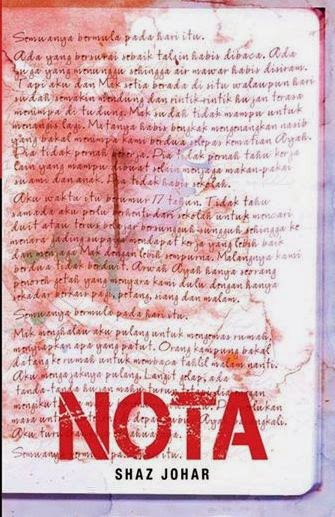 Semuanya bermula pada hari itu.
Ada yang bersurai sebaik talqin habis dibaca. Ada
juga yang menunggu sehingga air mawar habis disiram.
Tapi aku dan Mak setia berada di situ walaupun hari
sudah semakin mendung dan rintik-rintik hujan terasa
menimpa di tudung. Mak sudah tidak mampu untuk
menangis lagi. Matanya habis bengkak mengenangkan nasib
yang bakal menimpa kami berdua selepas kematian Ayah.
Dia tidak pernah kerja. Dia tidak pernah tahu kerja
lain yang mampu dibuat selain menjaga makan-pakai
suami dan anak. Dia tidak habis sekolah.
Aku waktu itu berumur 17 tahun. Tidak tahu
samada aku perlu berhenti dari sekolah untuk mencari
duit atau terus bersungguh-sungguh sehingga ke
menara gading supaya mendapat kerja yang lebih baik
dan menjaga Mak dengan lebih sempurna. Malangnya kami
berdua tidak berduit. Arwah Ayah hanya seorang
penoreh getah yang menyara kami dulu dengan hanya
sekadar makan petang, siang dan malam.
Semuanya bermula pada hari itu.
Mak menghalau aku pulang untuk mengemas rumah,
menyiapkan apa yang patut. Orang kampung bakal
datang ke rumah untuk membaca tahlil malam nanti.
Aku mengajaknya pulang. Langit gelap, ada
tanda-tanda hujan mahu turun
mengikut
masa untuk
Aku
NOTA
SHAZ JOHAR